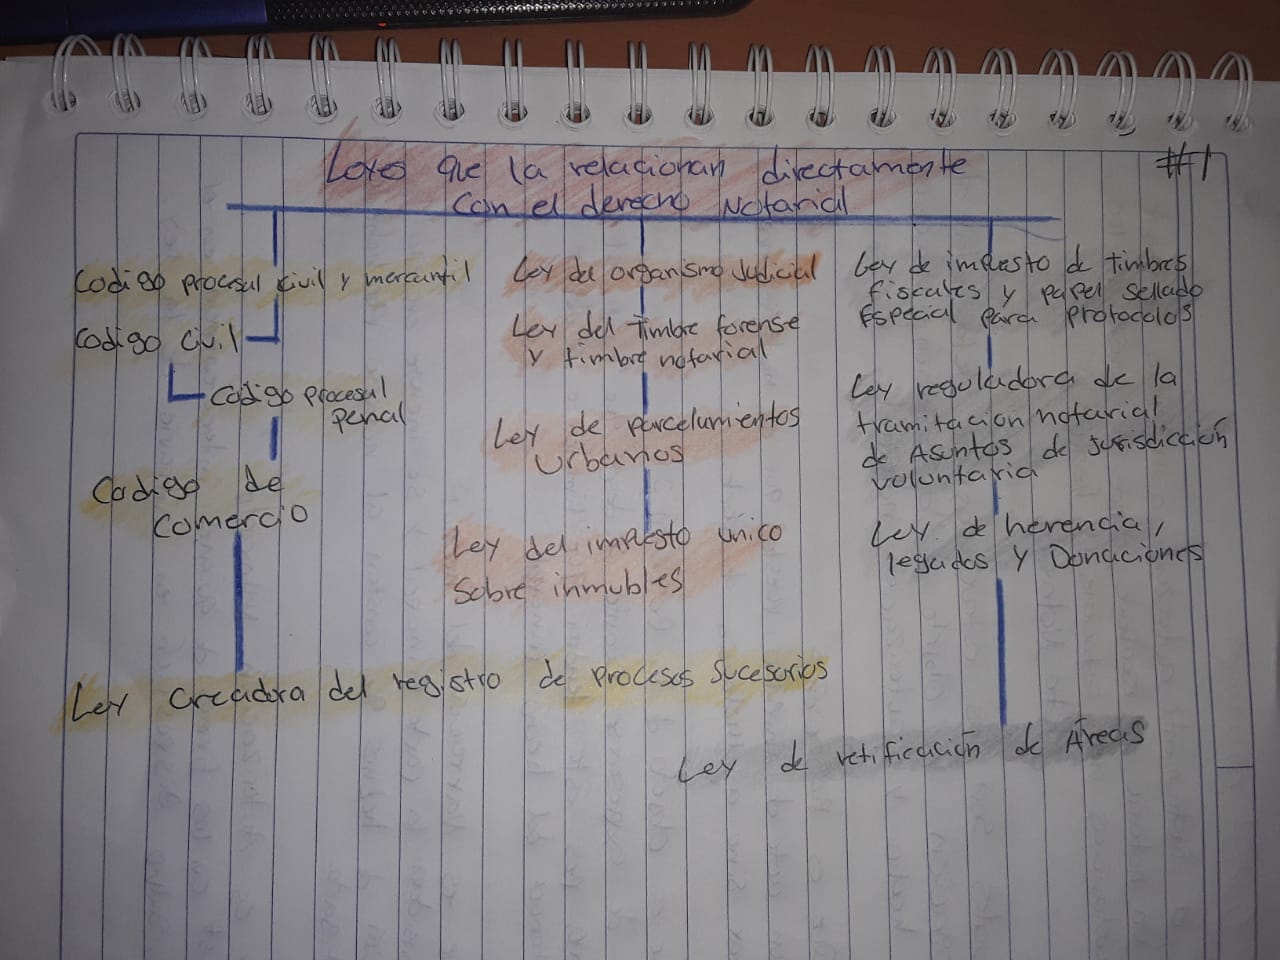 Leyes que la relacionan directamente
con el derecho Notarial
#1
Codigo procesal civil y mercantil
Codigo civil
Codigo procesal
penal
Codigo de
comercio
Ley creadora del registro de procesos sucesorios
Ley del organismo Judicial
Ley del timbre forense
y timbre notarial
Ley de parcelamientos
Urbanos
Ley del impuesto único
sobre inmubles
Ley de impuesto de timbres
fiscales y papel sellado
Especial para protocolos
Ley reguladora de la
tramitacion notarial
de Asuntos de jurisdicción
voluntaria
Ley de herencia,
legados y Donaciones
Ley de retificación de Áreas